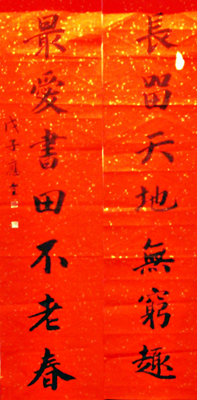 長留天地無窮趣
最愛書田不老春
戊子